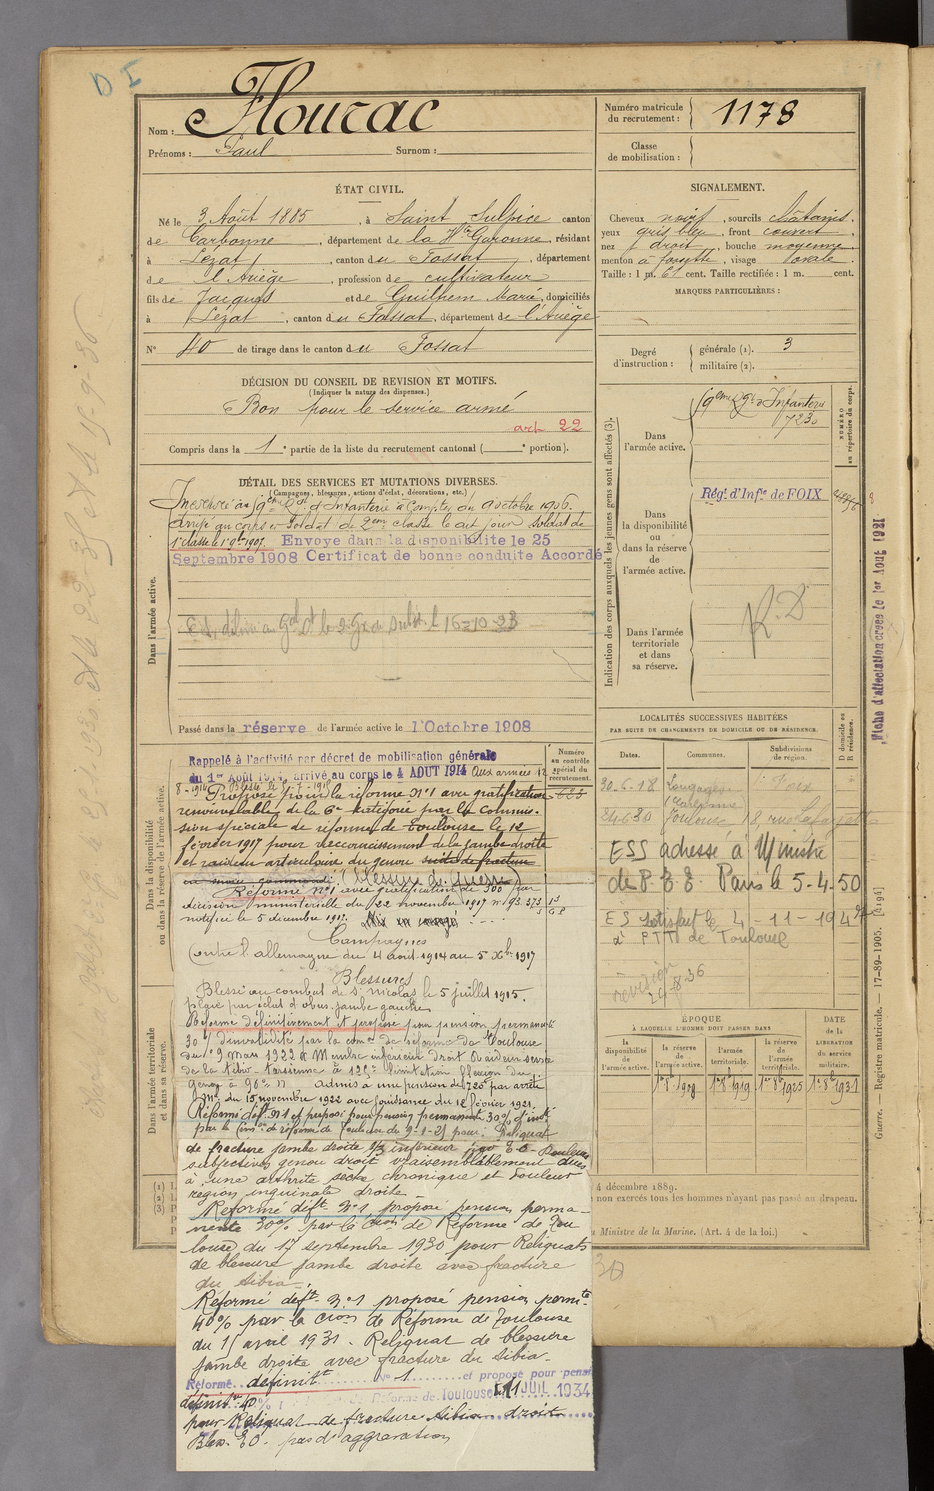 Nom : Flourac
Prénoms : Paul Surnom :
Numéro matricule du recrutement : 1178
Classe de mobilisation :
ÉTAT CIVIL.
Né le 3 Août 1885, à Saint Sulpice canton
de Carbonne, département de la Hte Garonne, résidant
à Lézat, canton du Fossat, département
de l'Ariège, profession de cultivateur
fils de Jacques et de Guilhem Marie, domiciliés
à Lézat, canton du Fossat, département de l'Ariège
N° 40 de tirage dans le canton du Fossat
SIGNALEMENT.
Cheveux noirs, sourcils châtains.
yeux gris bleu, front couvert
nez droit, bouche moyenne
menton à fossette, visage ovale.
Taille : 1 m. 61 cent. Taille rectifiée : 1 m. cent.
MARQUES PARTICULIÈRES :
Degré d'instruction : générale (1). 3
militaire (2).
DÉCISION DU CONSEIL DE REVISION ET MOTIFS.
(Indiquer la nature des dispenses.)
Bon pour le service armé
art 22
Compris dans la 1e partie de la liste du recrutement cantonal ( e portion).
DÉTAIL DES SERVICES ET MUTATIONS DIVERSES.
(Campagnes, blessures, actions d'éclat, décorations, etc.)
Incorporé au 59e Rgt d'Infanterie à compter du 9 octobre 1906.
Arrivé au corps et soldat de 2eme classe le dit jour. Soldat de
1e classe le 1 9bre 1907. Envoyé dans la disponibilité le 25
Septembre 1908 Certificat de bonne conduite Accordé
Dans l'armée active.
16-10-33
Passé dans la réserve de l'armée active le 1 Octobre 1908
Indication des corps auxquels les jeunes gens sont affectés (3).
NUMÉRO au répertoire du corps.
Dans l'armée active.
59eme Rgt d'Infanterie
7230
Dans la disponibilité ou dans la réserve de l'armée active.
Régt d'Infie de FOIX
Dans l'armée territoriale et dans sa réserve.
R.D
Fiche d'affectation créée le 1er Août 1921
Dans la disponibilité ou dans la réserve de l'armée active.
Numéro au contrôle spécial du recrutement.
625
Rappelé à l'activité par décret de mobilisation générale
du 1er Août 1914, arrivé au corps le 4 AOUT 1914 Aux armées 12
8-1914 Blessé le 5-7-1915
Proposé pour la réforme N°1 avec gratification
renouvelable de la 6e catégorie par la Commis-
sion spéciale de réforme de Toulouse le 12
février 1917 pour raccourcissement de la jambe droite
et raideur articulaire du genou suite de fracture
(Blessure de Guerre)
Réformé N°1 avec gratification de 300 par
décision ministerielle du 22 novembre 1917 n° 93.373
notifiée le 5 décembre 1917.
Campagnes
Contre l'allemagne du 4 août 1914 au 5 Xbre 1917
Blessures
Blessé au combat de St Nicolas le 5 juillet 1915.
plaie par éclat d'obus jambe gauche
Réformé définitivement et proposé pour pension permanente
30% d'invalidité par la comon de réforme de Toulouse
du 9 mars 1922
Genou à 90° admis à une pension de 720f par arrêté
du 15 novembre 1922 avec jouissance du 12 février 1921.
Réformé déft n°1 et proposé pour pension permanente 30% d'invté
par la Comon de réforme de Toulouse du 9-1-25 pour : Reliquat
de fracture jambe droite 1/3 inférieur
subjectives genou droit vraisemblablement dues
à une arthrite sèche chronique et douleur
région inguinale droite.
Réformé déft N°1 proposé pension perma-
nente 30% par la Cion de Réforme de Tou
louse du 17 septembre 1930 pour Reliquats
de blessure jambe droite avec fracture
du tibia.
Réformé déft n°1 proposé pension permte
40% par la Cion de Réforme de Toulouse
du 15 avril 1931. Reliquat de blessure
jambe droite avec fracture du tibia.
Réformé définitt N° 1 et proposé pour pension
définitve 40% Réforme de Toulouse 11 JUIL 1934
pour Reliquat de fracture tibia droite
Bless. EO. pas d'aggravation
Dans l'armée territoriale et dans sa réserve.
LOCALITÉS SUCCESSIVES HABITÉES
PAR SUITE DE CHANGEMENTS DE DOMICILE OU DE RÉSIDENCE.
Dates. Communes. Subdivisions de région. D domicile ou R résidence.
30-6-18 Longages (Carbonne) Foix
24630 Toulouse 8, rue Lafayette
ESS adressé à Ministre
de P.T.T. Paris le 5-4-50
ES satisfait le 4-11-194
d' PTT de Toulouse
révision
ÉPOQUE
À LAQUELLE L'HOMME DOIT PASSER DANS
DATE de la LIBÉRATION du service militaire.
la disponibilité de l'armée active. la réserve de l'armée active. l'armée territoriale. la réserve de l'armée territoriale.
1er 8bre 1908 1er 8bre 1919 1er 8bre 1925 1er 8bre 1931
4 décembre 1889.
non exercés tous les hommes n'ayant pas passé au drapeau.
Ministre de la Marine. (Art. 4 de la loi.)
Guerre. — Registre matricule. — 17-89-1905. [2194]